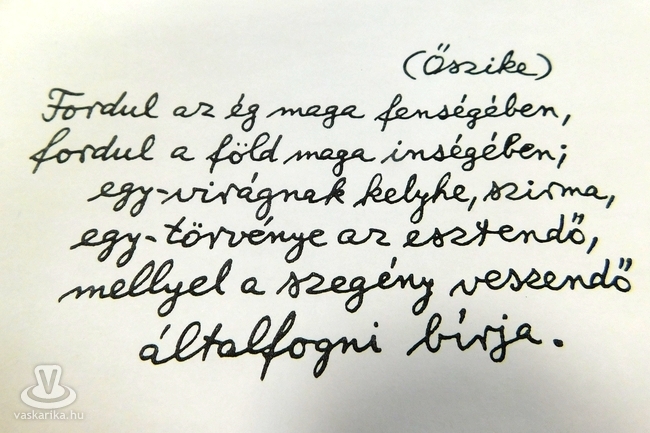 (Őszike)
Fordul az ég maga fenségében,
fordul a föld maga inségében;
egy-virágnak kelyhe, szirma,
egy-törvénye az esztendő,
mellyel a szegény veszendő
általfogni bírja.
vaskarika.hu